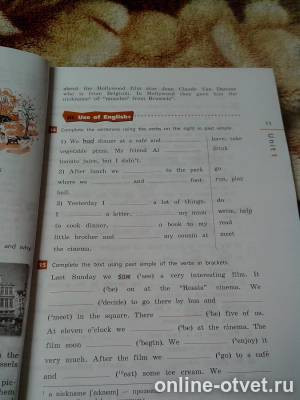 about the Hollywood film star Jean Claude Van Damme
who is from Belgium. In Hollywood they gave him the
nickname* of "muscles" from Brussels".
Use of English
14 Complete the sentences using the verbs on the right in past simple.
1) We had dinner at a café and ________
vegetable pizza. My friend Al ________
tomato juice, but I didn't.
have, take
drink
2) After lunch we ________ to the park
where we ________ and ________ foot-
ball.
go
run, play
3) Yesterday I ________ a lot of things.
I ________ a letter, ________ my mom
to cook dinner, ________ a book to my
little brother and ________ my cousin at
the cinema.
do
write, help
read
meet
15 Complete the text using past simple of the verbs in brackets.
Last Sunday we saw (¹see) a very interesting film. It
________ (²be) on at the "Russia" cinema. We
________ (³decide) to go there by ________ and ________
(⁴meet) in the square. There ________ (⁵be) five of us.
At eleven o'clock we ________ (⁶be) at the cinema. The
film soon ________ (⁷begin). We ________ (⁸enjoy) it
very much. After the film we ________ (⁹go) to a café
and ________ (¹⁰eat) some ice cream. We
a nickname [nɪkneɪm] —
Unit 1
and why
the
ssels
pic-
em?
online-otvet.ru